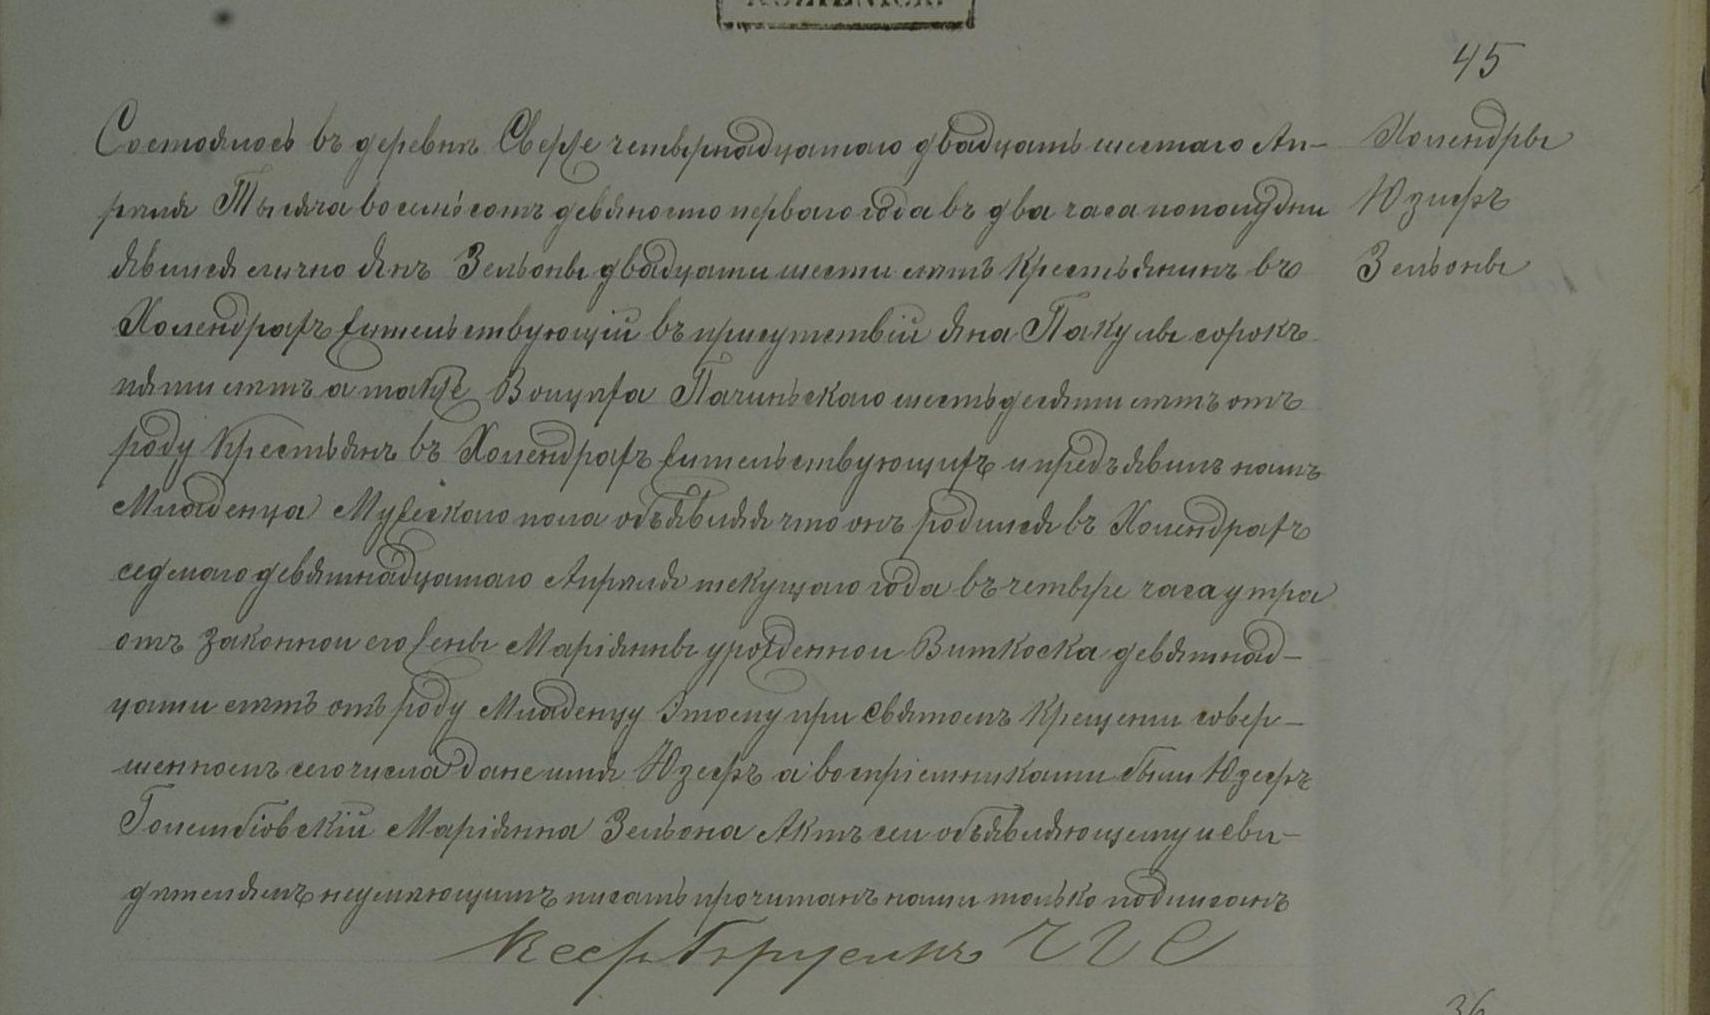 KOZIENICK.
45
Состоялось въ деревнѣ Сверже четырнадцатаго двадцать шестаго Ап-
Холендры
рѣля Тысяча восемьсотъ девяносто перваго года въ два часа пополудни
Юзефъ
явился лично Янъ Зельоны двадцати шести лѣтъ Крестьянинъ въ
Зельоны
Холендрахъ жительствующій въ присутствіи Яна Пакулы сорокъ
пяти лѣтъ а также Войцѣха Пачиньскаго шестьдесяти лѣтъ отъ
роду Крестьянъ въ Холендрахъ жительствующихъ и предъявилъ намъ
Младенца Мужескаго пола объявляя что онъ родился въ Холендрахъ
седмаго девятнадцатаго Апрѣля текущаго года въ четыре часа утра
отъ законной его жены Маріянны урожденной Виткоска девятнад-
цати лѣтъ отъ роду Младенцу Этому при Святомъ Крещении совер-
шенномъ сего числа дане имя Юзефъ а воспріемниками были Юзефъ
Голембіовскій Маріянна Зельона Актъ сей объявляющему и сви-
дѣтелямъ неумѣющимъ писать прочитанъ нами только подписанъ
36